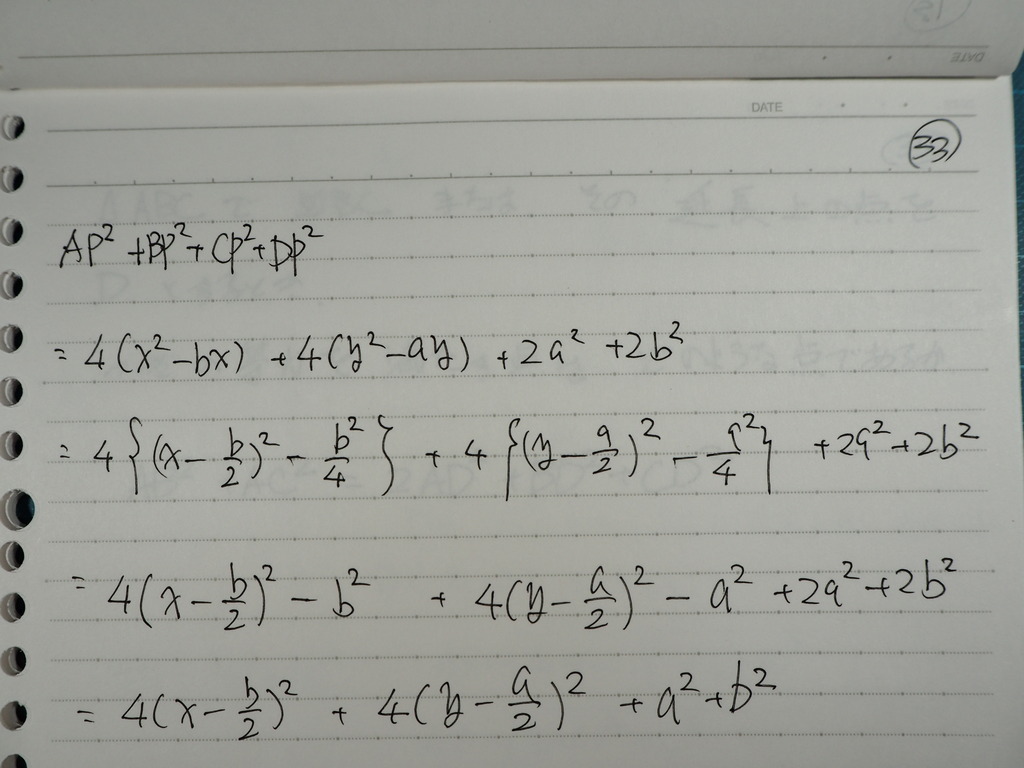 DATE
33
AP² + BP² + CP² + DP²
= 4(x² - bx) + 4(y² - ay) + 2a² + 2b²
= 4{(x - b/2)² - b²/4} + 4{(y - a/2)² - a²/4} + 2a² + 2b²
= 4(x - b/2)² - b² + 4(y - a/2)² - a² + 2a² + 2b²
= 4(x - b/2)² + 4(y - a/2)² + a² + b²